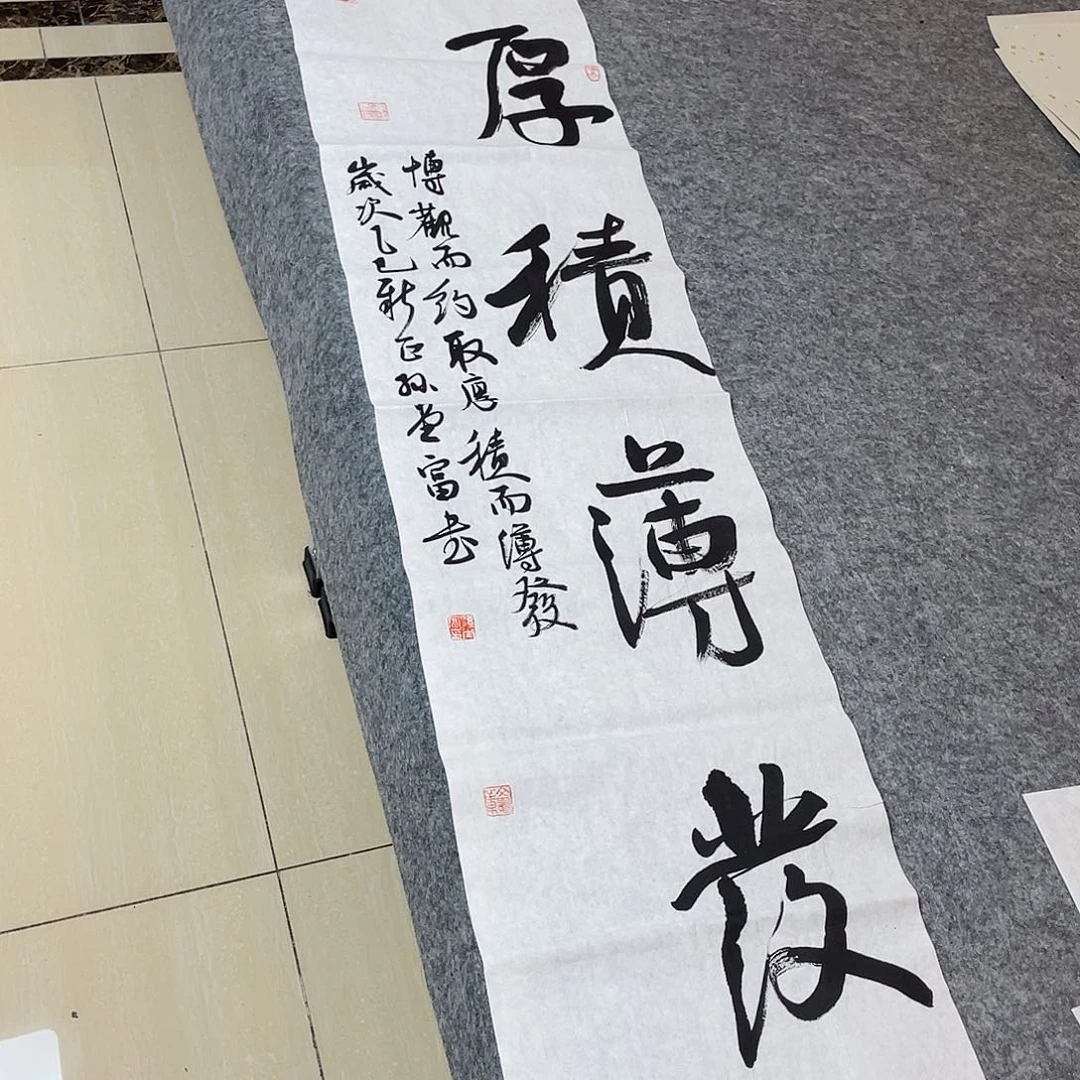 厚積薄發
博觀而約取厚積而薄發
歲次乙巳新正孫堂富書